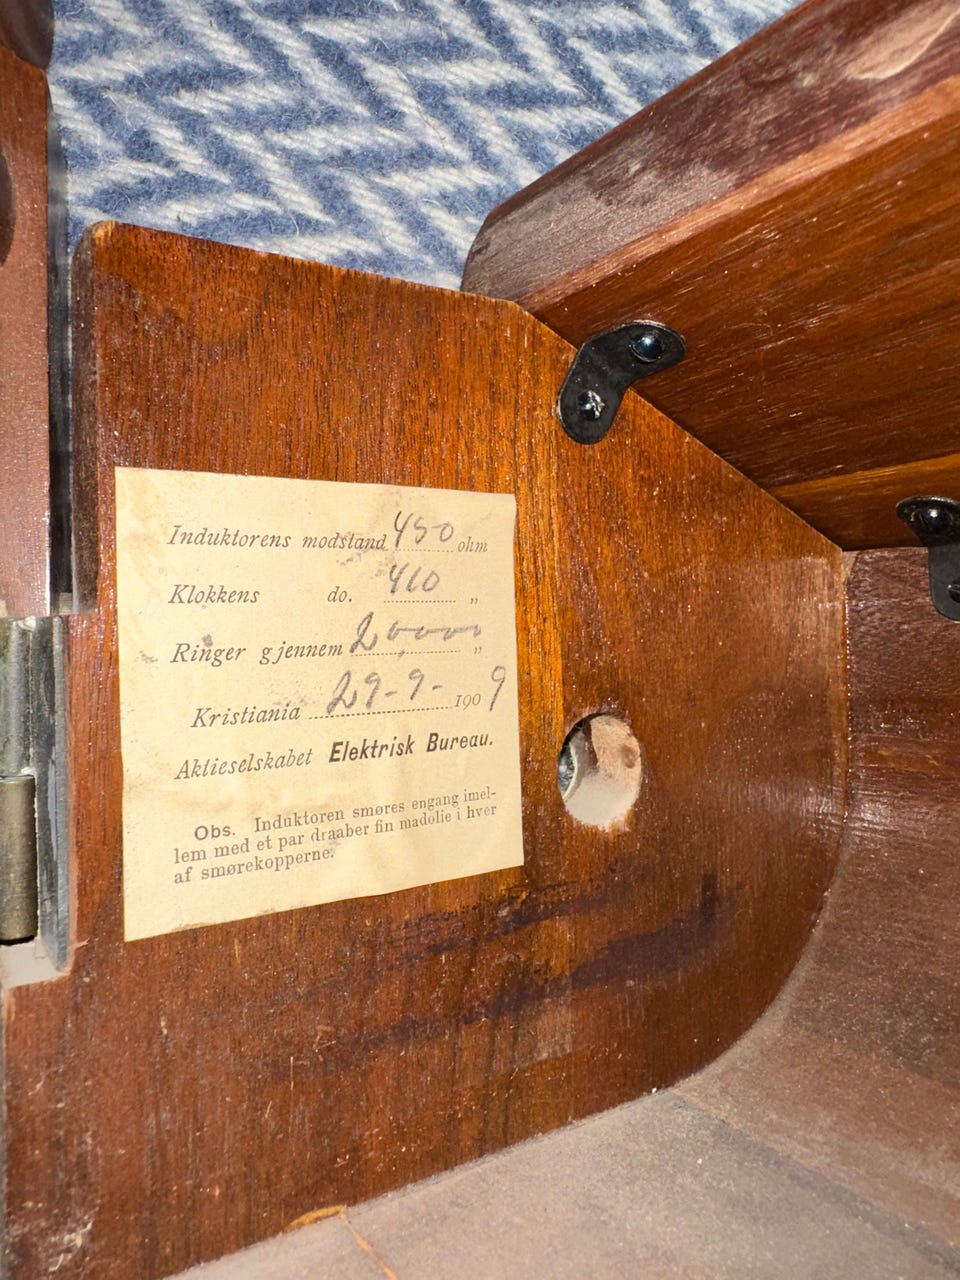 Induktorens modstand 450 ohm
Klokkens do. 410 „
Ringer gjennem 20,000 „
Kristiania 29-9- 1909
Aktieselskabet Elektrisk Bureau.
Obs. Induktoren smøres engang imel-
lem med et par draaber fin madolie i hver
af smørekopperne.